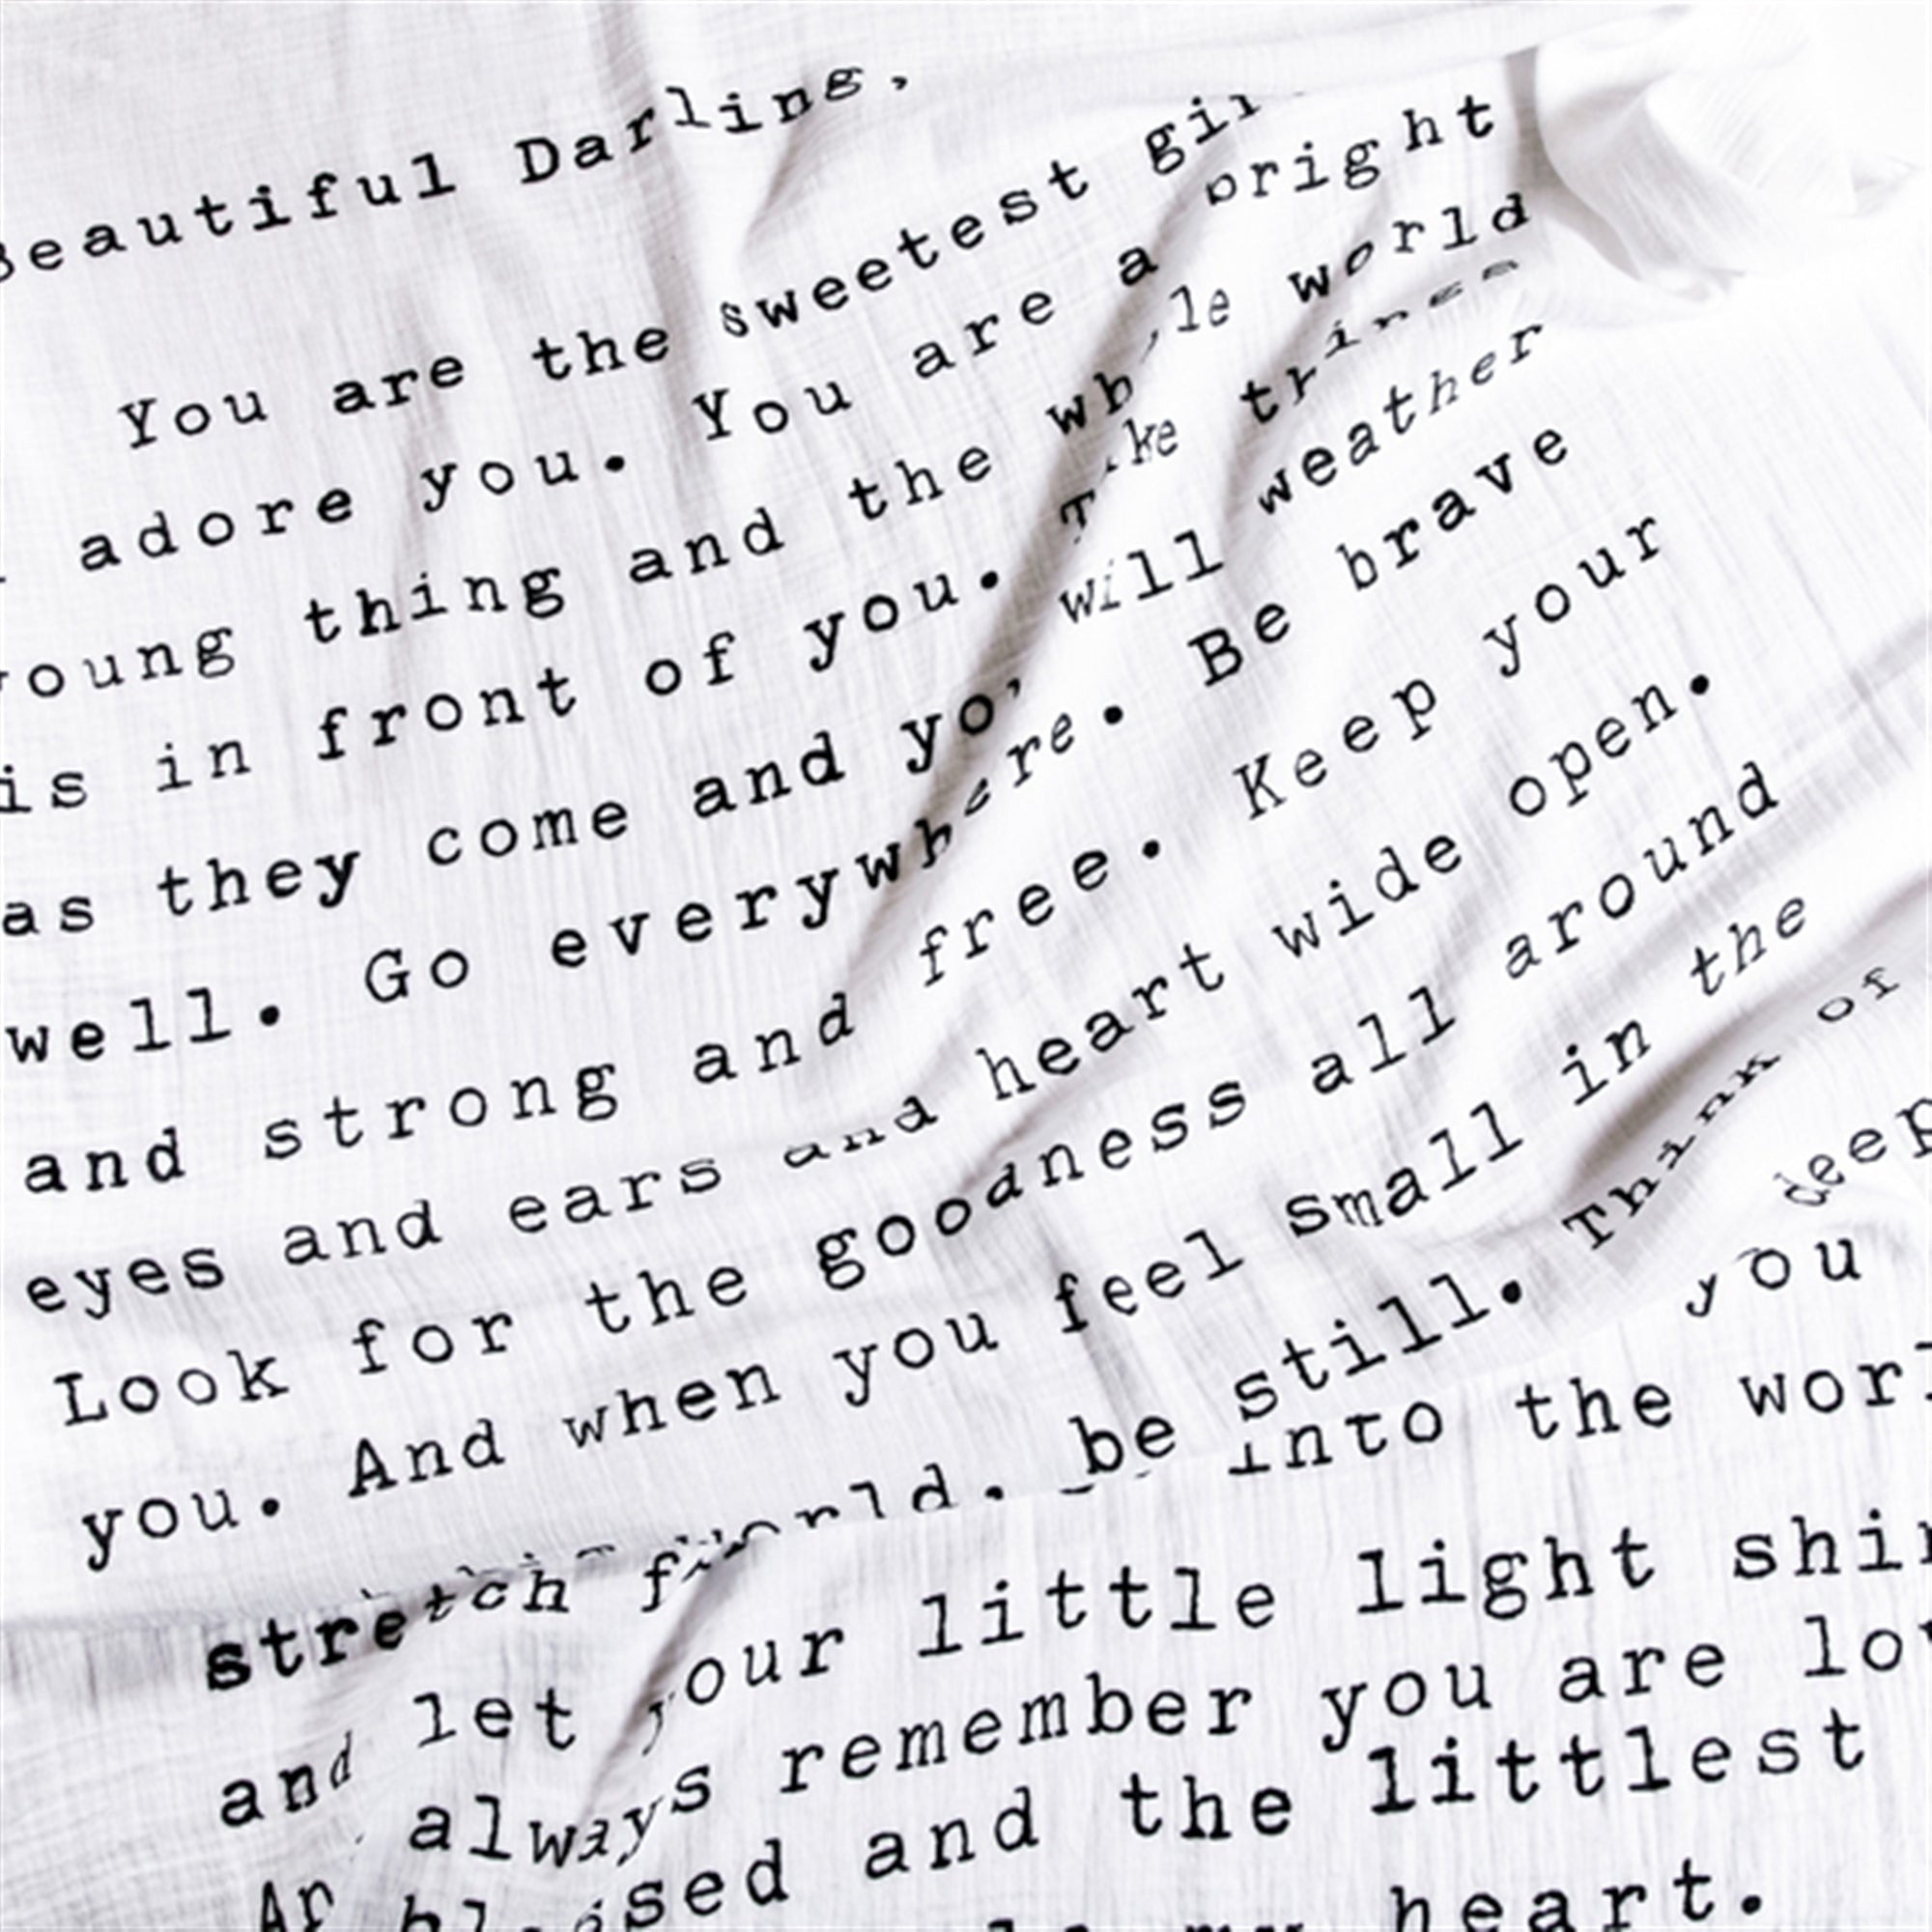 Beautiful Darling,
You are the sweetest
adore you. You are a bright
young thing and the whole world
is in front of you. Take things
as they come and you will weather
well. Go everywhere. Be brave
and strong and free. Keep your
eyes and ears and heart wide open.
Look for the goodness all around
you. And when you feel small in the
world, be still. Think of
stretch into the
you deep
and let your little light
always remember you are
blessed and the littlest
my heart.